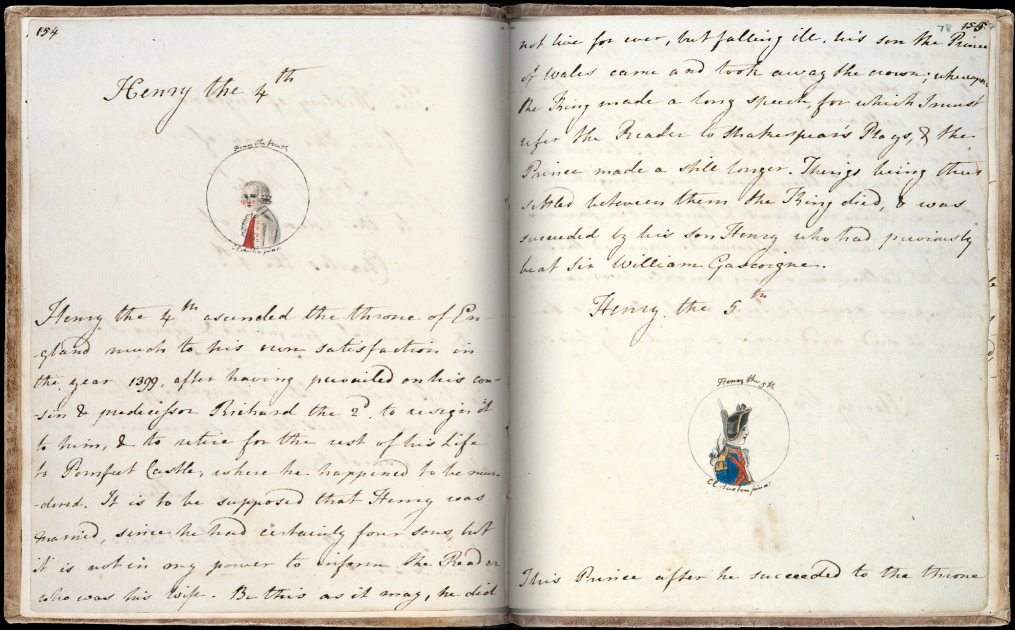 154
Henry the 4th
Henry the fourth
C E Austen pinx.
Henry the 4th ascended the throne of En-
-gland much to his own satisfaction in
the year 1399, after having prevailed on his cou-
-sin & predecessor Richard the 2d to resign it
to him, & to retire for the rest of his Life
to Pomfret Castle, where he happened to be mur-
-dered. It is to be supposed that Henry was
married, since he had certainly four sons, but
it is not in my power to inform the Reader
who was his Wife. Be this as it may, he did
155
78
not live for ever, but falling ill, his son the Prince
of Wales came and took away the crown; whereupon,
the King made a long speech, for which I must
refer the Reader to Shakespear's Plays, & the
Prince made a still longer. Things being thus
settled between them the King died, & was
succeeded by his son Henry who had previously
beat Sir William Gascoigne.
Henry the 5th
Henry the 5th
C E Austen pinx.
This Prince after he succeeded to the throne